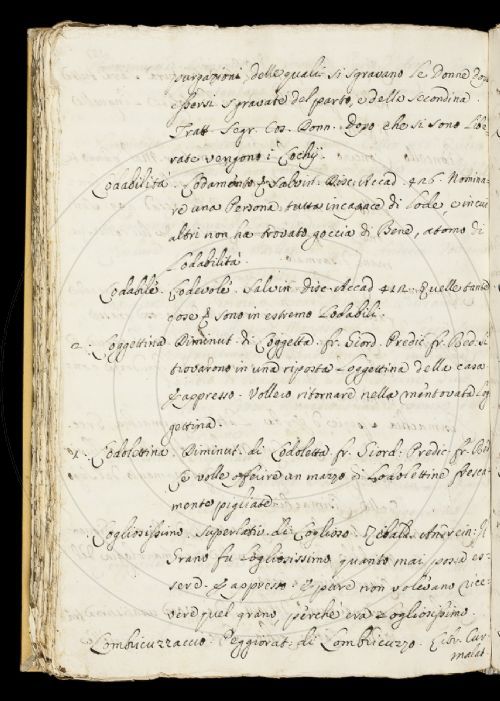 purgazioni, delle quali si sgravano le Donne dopo
essersi sgravate del parto, e della secondina.
Tratt. Segr. Cos. Donn. Dopo che si sono libe-
rate vengono i Lochij.
Lodabilità. Lodamento. Salvin. Disc. Accad. 426. Nomina-
re una Persona tutta incapace di lode, e in cui
altri non ha trovato goccia di Bene, atomo di
Lodabilità.
Lodabile. Lodevole. Salvin. Disc. Accad. 412. Quelle tante
cose sono in estremo Lodabili.
2. Loggettina. Diminut. di Loggetta. fr. Giord. Predic. fr. Bed. si
trovarono in una riposta Loggettina della casa
E appresso. Volleio ritornare nella mentovata log-
gettina.
1. Lodolettina. Diminut. di Lodoletta. fr. Giord. Predic. fr. Bed
Se volle offerire un mazzo di Lodolettine fresca-
mente pigliate.
Logliosissimo. Superlativ. di Loglioso. Tibald. Andrein. Il
Grano fu logliosissimo quanto mai possa es-
sere. E appresso. E pure non volevano rice-
vere quel grano, perchè era Logliosissimo.
Lombricuzzaccio. Peggiorat. di Lombricuzzo. Libr. Cur.
malat.